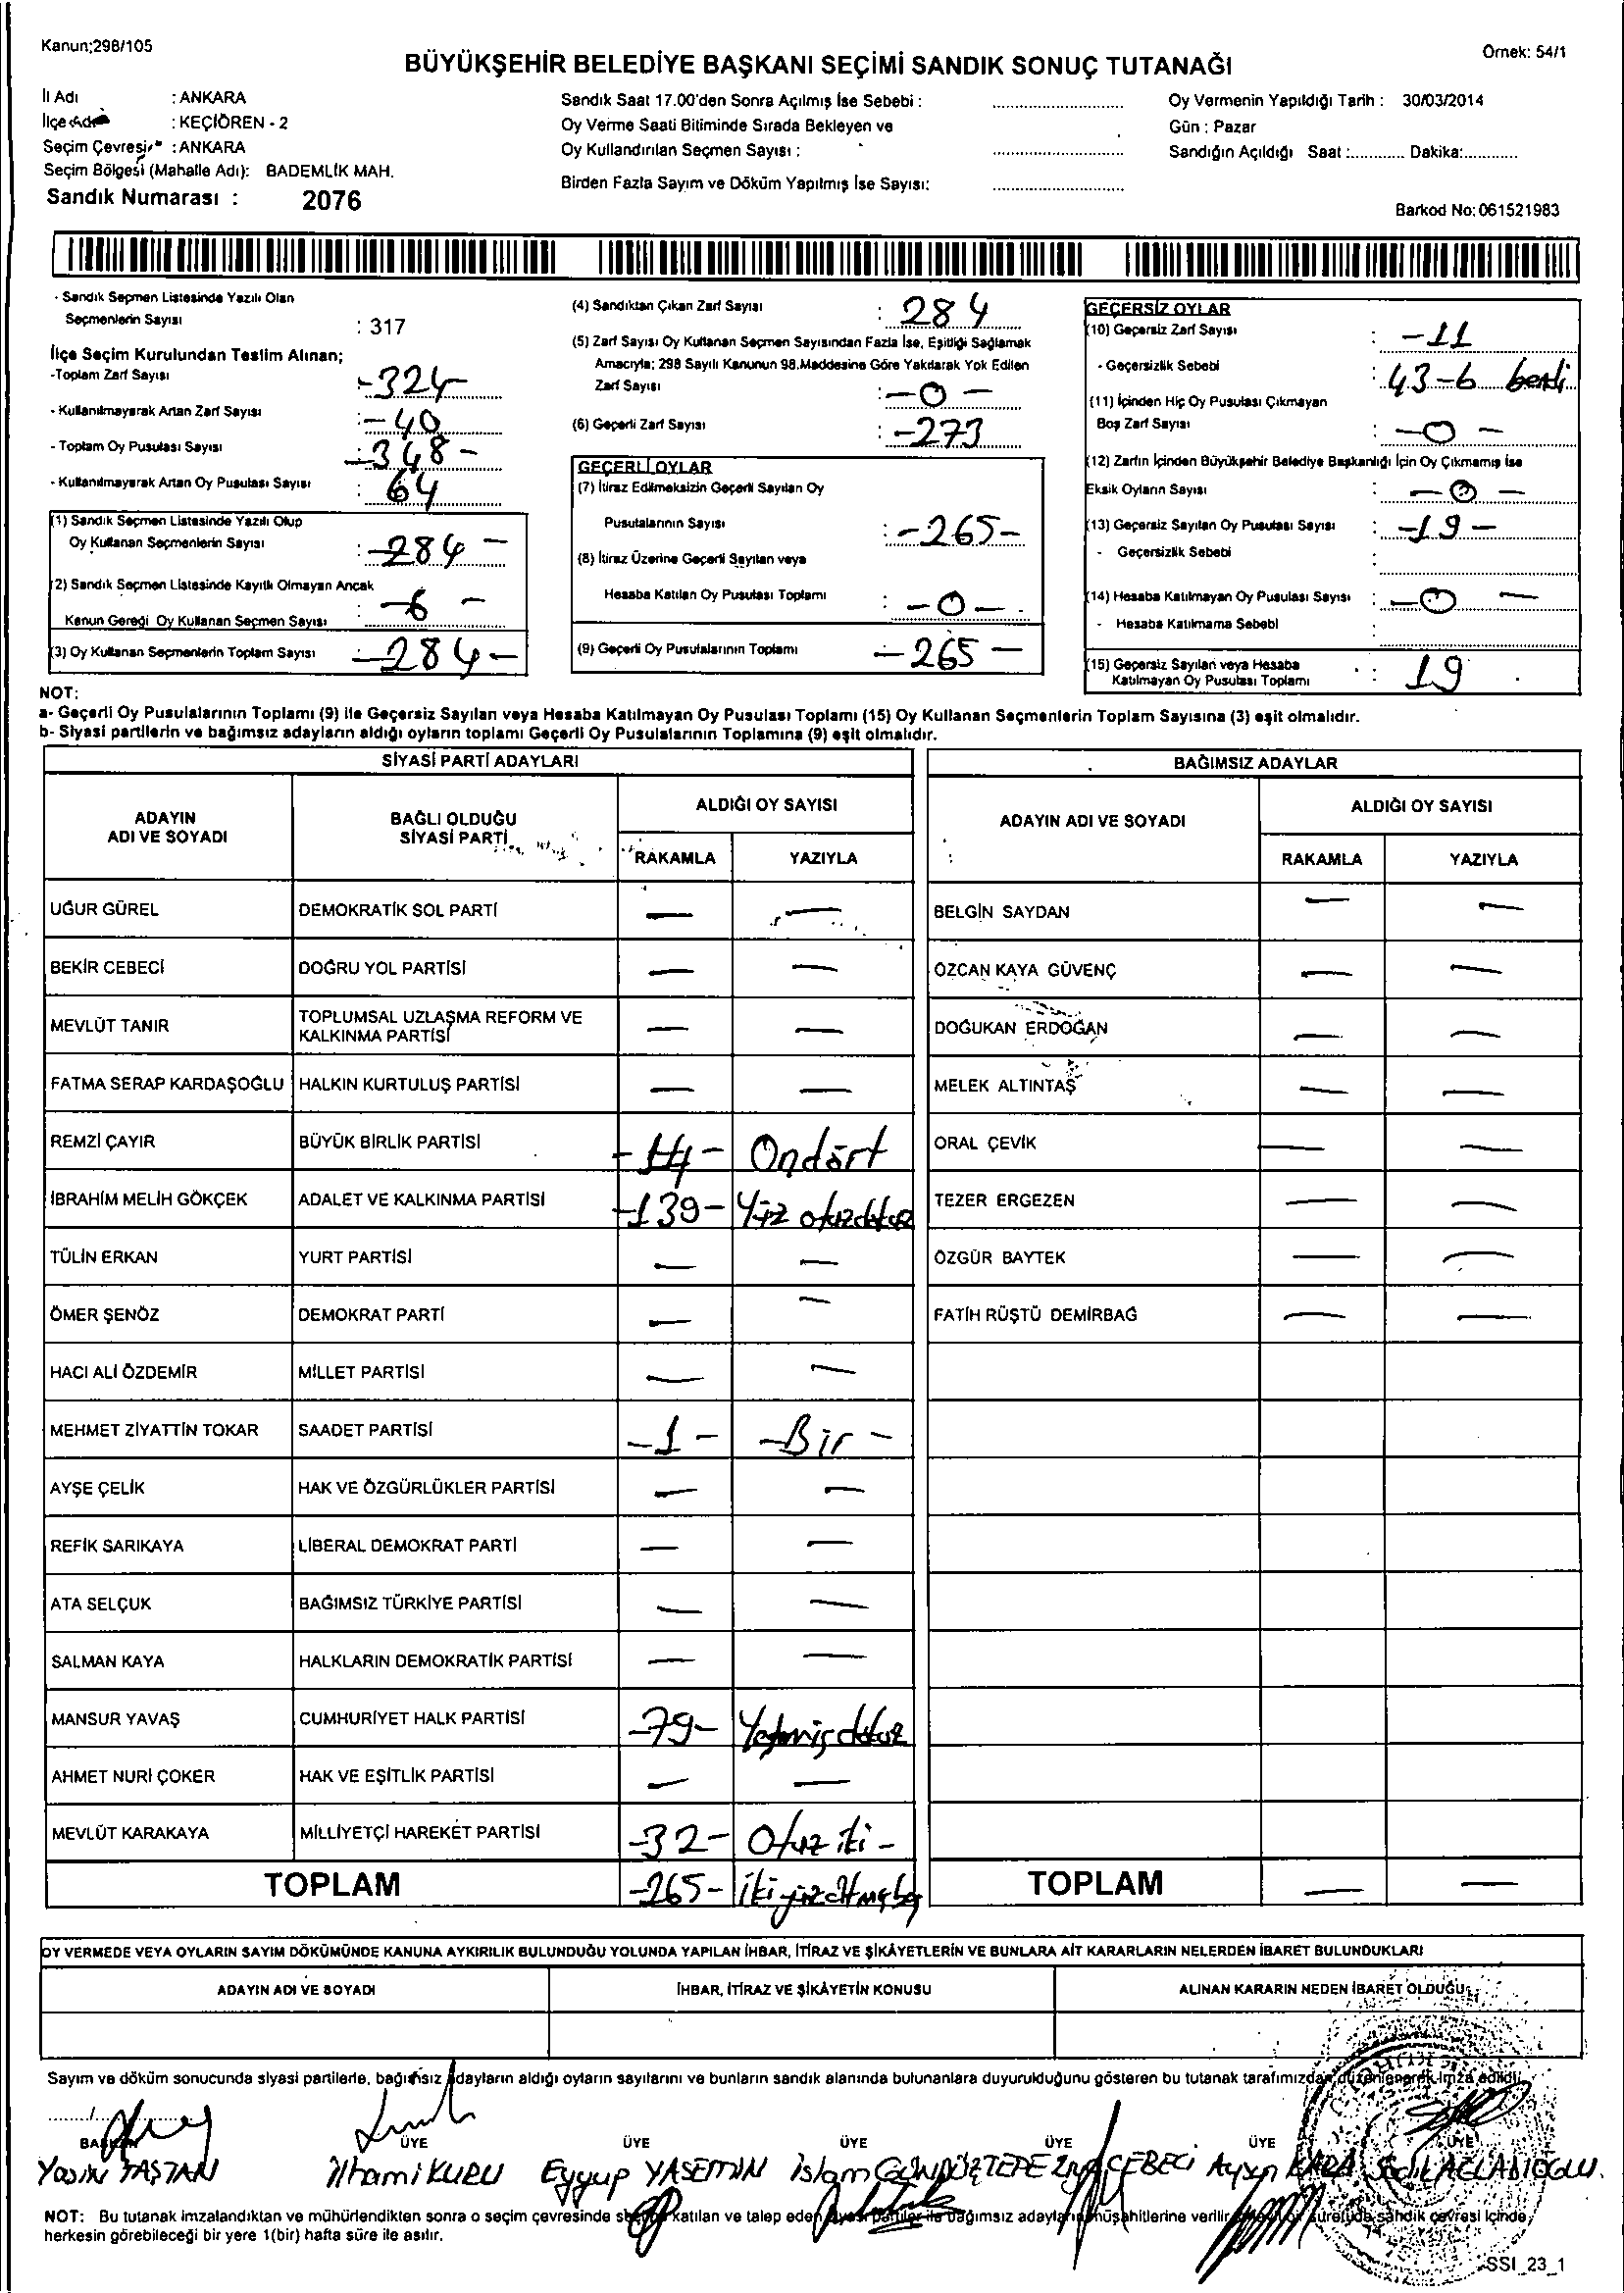 Kanun;298/105
Örnek: 54/1
BÜYÜKŞEHİR BELEDİYE BAŞKANI SEÇİMİ SANDIK SONUÇ TUTANAĞI
İl Adı : ANKARA
İlçe Adı : KEÇİÖREN - 2
Seçim Çevresi : ANKARA
Seçim Bölgesi (Mahalle Adı): BADEMLİK MAH.
Sandık Numarası : 2076
Sandık Saat 17.00'den Sonra Açılmış İse Sebebi :
Oy Verme Saati Bitiminde Sırada Bekleyen ve
Oy Kullandırılan Seçmen Sayısı :
Birden Fazla Sayım ve Döküm Yapılmış İse Sayısı:
Oy Vermenin Yapıldığı Tarih : 30/03/2014
Gün : Pazar
Sandığın Açıldığı Saat :............ Dakika:............
Barkod No: 061521983
- Sandık Seçmen Listesinde Yazılı Olan
Seçmenlerin Sayısı : 317
İlçe Seçim Kurulundan Teslim Alınan;
-Toplam Zarf Sayısı : -324-
- Kullanılmayarak Artan Zarf Sayısı : -40
- Toplam Oy Pusulası Sayısı : -348-
- Kullanılmayarak Artan Oy Pusulası Sayısı : 64
(1) Sandık Seçmen Listesinde Yazılı Olup
Oy Kullanan Seçmenlerin Sayısı : -284-
(2) Sandık Seçmen Listesinde Kayıtlı Olmayan Ancak
Kanun Gereği Oy Kullanan Seçmen Sayısı : -6-
(3) Oy Kullanan Seçmenlerin Toplam Sayısı : -284-
(4) Sandıktan Çıkan Zarf Sayısı : 284
(5) Zarf Sayısı Oy Kullanan Seçmen Sayısından Fazla İse, Eşitliği Sağlamak
Amacıyla; 298 Sayılı Kanunun 98.Maddesine Göre Yakılarak Yok Edilen
Zarf Sayısı : -0-
(6) Geçerli Zarf Sayısı : -273
GEÇERLİ OYLAR
(7) İtiraz Edilmeksizin Geçerli Sayılan Oy
Pusulalarının Sayısı : -265-
(8) İtiraz Üzerine Geçerli Sayılan veya
Hesaba Katılan Oy Pusulası Toplamı : -0-
(9) Geçerli Oy Pusulalarının Toplamı -265-
GEÇERSİZ OYLAR
(10) Geçersiz Zarf Sayısı : -11
- Geçersizlik Sebebi : 43-6 bendi
(11) İçinden Hiç Oy Pusulası Çıkmayan
Boş Zarf Sayısı : -0-
(12) Zarfın İçinden Büyükşehir Belediye Başkanlığı İçin Oy Çıkmamış İse
Eksik Oyların Sayısı : -0-
(13) Geçersiz Sayılan Oy Pusulası Sayısı : -19-
- Geçersizlik Sebebi :
(14) Hesaba Katılmayan Oy Pusulası Sayısı : -0-
- Hesaba Katılmama Sebebi :
(15) Geçersiz Sayılan veya Hesaba
Katılmayan Oy Pusulası Toplamı : 19
NOT:
a- Geçerli Oy Pusulalarının Toplamı (9) ile Geçersiz Sayılan veya Hesaba Katılmayan Oy Pusulası Toplamı (15) Oy Kullanan Seçmenlerin Toplam Sayısına (3) eşit olmalıdır.
b- Siyasi partilerin ve bağımsız adayların aldığı oyların toplamı Geçerli Oy Pusulalarının Toplamına (9) eşit olmalıdır.
SİYASİ PARTİ ADAYLARI
ADAYIN ADI VE SOYADI
BAĞLI OLDUĞU SİYASİ PARTİ
ALDIĞI OY SAYISI
RAKAMLA YAZIYLA
UĞUR GÜREL DEMOKRATİK SOL PARTİ — —
BEKİR CEBECİ DOĞRU YOL PARTİSİ — —
MEVLÜT TANIR TOPLUMSAL UZLAŞMA REFORM VE KALKINMA PARTİSİ — —
FATMA SERAP KARDAŞOĞLU HALKIN KURTULUŞ PARTİSİ — —
REMZİ ÇAYIR BÜYÜK BİRLİK PARTİSİ -14- Ondört
İBRAHİM MELİH GÖKÇEK ADALET VE KALKINMA PARTİSİ -139- Yüz otuzdokuz
TÜLİN ERKAN YURT PARTİSİ — —
ÖMER ŞENÖZ DEMOKRAT PARTİ — —
HACI ALİ ÖZDEMİR MİLLET PARTİSİ — —
MEHMET ZİYATTİN TOKAR SAADET PARTİSİ -1- -Bir-
AYŞE ÇELİK HAK VE ÖZGÜRLÜKLER PARTİSİ — —
REFİK SARIKAYA LİBERAL DEMOKRAT PARTİ — —
ATA SELÇUK BAĞIMSIZ TÜRKİYE PARTİSİ — —
SALMAN KAYA HALKLARIN DEMOKRATİK PARTİSİ — —
MANSUR YAVAŞ CUMHURİYET HALK PARTİSİ -79- Yetmişdokuz
AHMET NURİ ÇOKER HAK VE EŞİTLİK PARTİSİ — —
MEVLÜT KARAKAYA MİLLİYETÇİ HAREKET PARTİSİ -32- Otuz iki-
TOPLAM -265- İkiyüzaltmışbeş
BAĞIMSIZ ADAYLAR
ADAYIN ADI VE SOYADI
ALDIĞI OY SAYISI
RAKAMLA YAZIYLA
BELGİN SAYDAN — —
ÖZCAN KAYA GÜVENÇ — —
DOĞUKAN ERDOĞAN — —
MELEK ALTINTAŞ — —
ORAL ÇEVİK — —
TEZER ERGEZEN — —
ÖZGÜR BAYTEK — —
FATİH RÜŞTÜ DEMİRBAĞ — —
TOPLAM — —
OY VERMEDE VEYA OYLARIN SAYIM DÖKÜMÜNDE KANUNA AYKIRILIK BULUNDUĞU YOLUNDA YAPILAN İHBAR, İTİRAZ VE ŞİKÂYETLERİN VE BUNLARA AİT KARARLARIN NELERDEN İBARET BULUNDUKLARI
ADAYIN ADI VE SOYADI İHBAR, İTİRAZ VE ŞİKÂYETİN KONUSU ALINAN KARARIN NEDEN İBARET OLDUĞU
Sayım ve döküm sonucunda siyasi partilerle, bağımsız adayların aldığı oyların sayılarını ve bunların sandık alanında bulunanlara duyurulduğunu gösteren bu tutanak tarafımızdan düzenlenerek imza edildi.
BAŞKAN ÜYE ÜYE ÜYE ÜYE ÜYE ÜYE
Yasin TAŞTAN İlhami KURU Eyyup YASEMİN İslam GÜNDÜZTEPE CEBECİ Ayşen KARA
NOT: Bu tutanak imzalandıktan ve mühürlendikten sonra o seçim çevresinde seçime katılan ve talep eden siyasi partiler ile bağımsız adayların müşahitlerine verilir sandık çevresi içinde,
herkesin görebileceği bir yere 1(bir) hafta süre ile asılır.
SSI_23_1